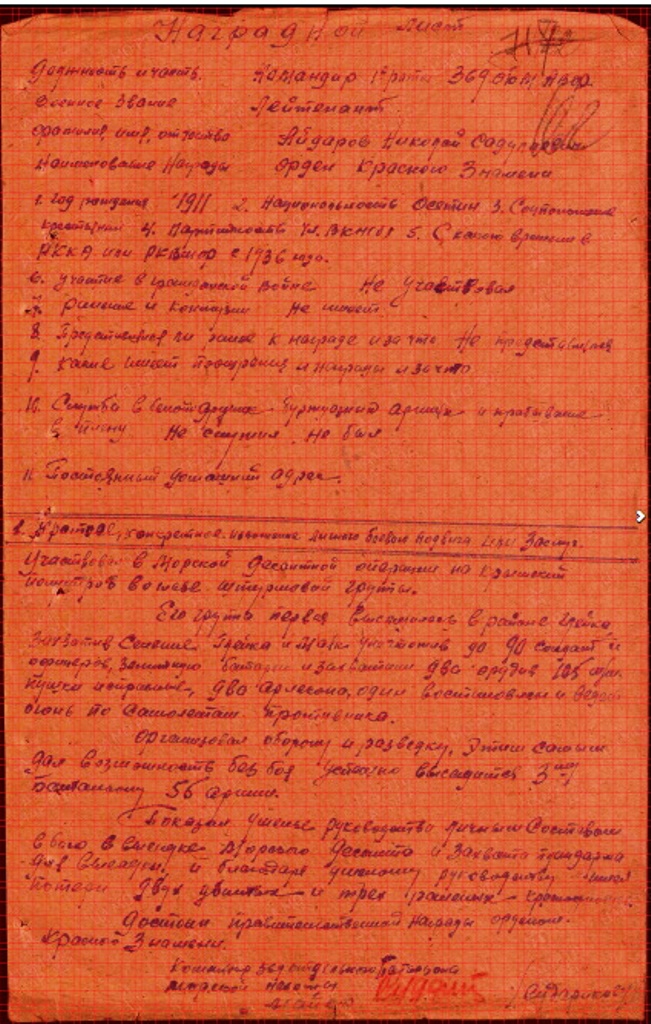 Наградной лист
Должность и часть. Командир 1 роты 369
Военное звание Лейтенант
фамилия, имя, отчество Айдаров Николай
Наименование Награды орден Красного Знамени
1. Год рождения 1911 2. Национальность Осетин 3. Соцположение
4. Партийность чл. ВКП(б) 5. С какого времени в
РККА или с 1936 года.
6. Участие в гражданской войне Не участвовал
7. Ранения и контузии Не имеет
8. Представлялся ли ранее к награде и за что Не представлялся
9. Какие имеет поощрения и награды и за что
10. Служба в буржуазных армиях и пребывание
в плену Не служил. Не был
11. Постоянный домашний адрес.
Краткое, конкретное изложение личного боевого подвига или заслуг.
Участвовал в Морской десантной операции на Крымский
полуостров во главе штурмовой группы.
Его группа первая высадилась в районе
Захватив селение и Маяк уничтожив до 90 солдат и
офицеров, зенитную батарею и захватили два орудия 105
пушки исправные, два один восстановлен и
огонь по самолетам противника.
Организовал оборону и разведку. Этим самым
дал возможность без боя высадится
батальону 56 армии.
Показал уменье руководства личным составом
в бою в высадке Морского десанта и захвата плацдарма
для высадки, и благодаря руководству
потери двух убитых и трех раненых
Достоин правительственной Награды орденом
Красного Знамени.
Командир 369 отдельного батальона
морской пехоты
майор